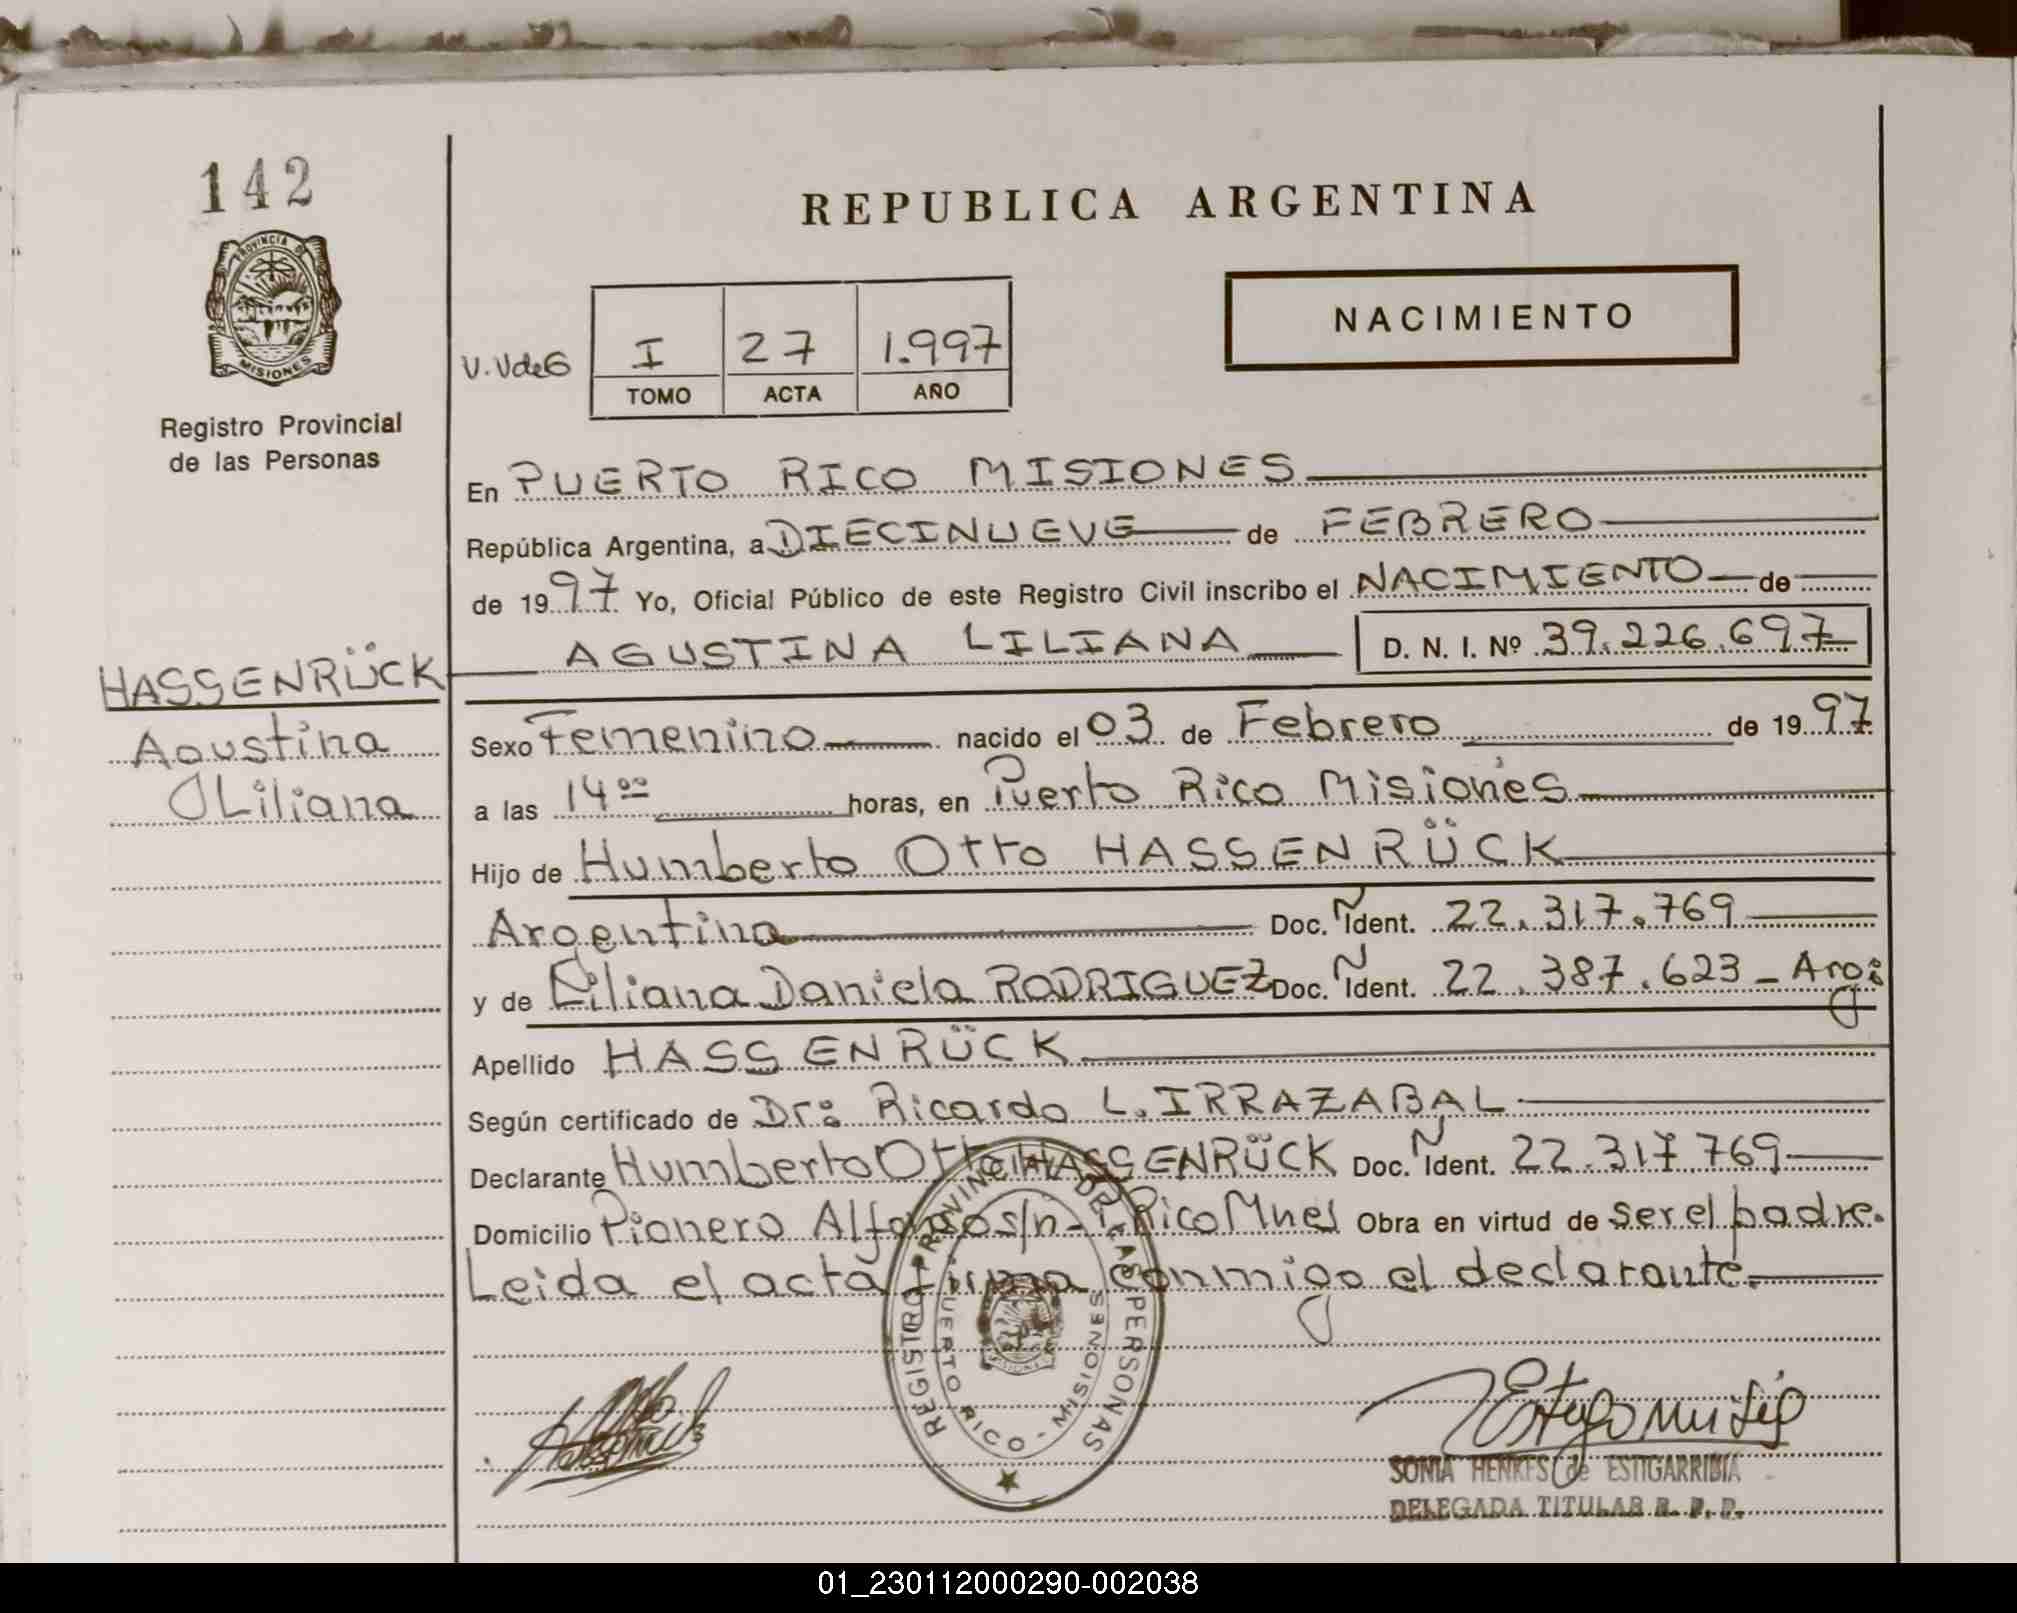 142
REPUBLICA ARGENTINA
PROVINCIA DE MISIONES
Registro Provincial
de las Personas
NACIMIENTO
V.VdeG
I 27 1.997
TOMO ACTA AÑO
En PUERTO RICO MISIONES
República Argentina, a DIECINUEVE de FEBRERO
de 1997 Yo, Oficial Público de este Registro Civil inscribo el NACIMIENTO de
AGUSTINA LILIANA D. N. I. Nº 39.226.697
HASSENRÜCK
Agustina
Liliana
Sexo Femenino nacido el 03 de Febrero de 1997
a las 14⁰⁰ horas, en Puerto Rico Misiones
Hijo de Humberto Otto HASSENRÜCK
Argentina Doc. Ident. 22.317.769
y de Liliana Daniela RODRIGUEZ Doc. Ident. 22.387.623 - Arg:
Apellido HASSENRÜCK
Según certificado de Dr: Ricardo L. IRRAZABAL
Declarante Humberto Otto HASSENRÜCK Doc. Ident. 22.317.769
Domicilio Pionero Alfonso s/n - P. Rico Mnes Obra en virtud de ser el padre.
Leida el acta firma conmigo el declarante.
REGISTRO PROVINCIAL DE LAS PERSONAS
PUERTO RICO - MISIONES
SONIA HENKES de ESTIGARRIBIA
DELEGADA TITULAR R. P. P.
01_230112000290-002038